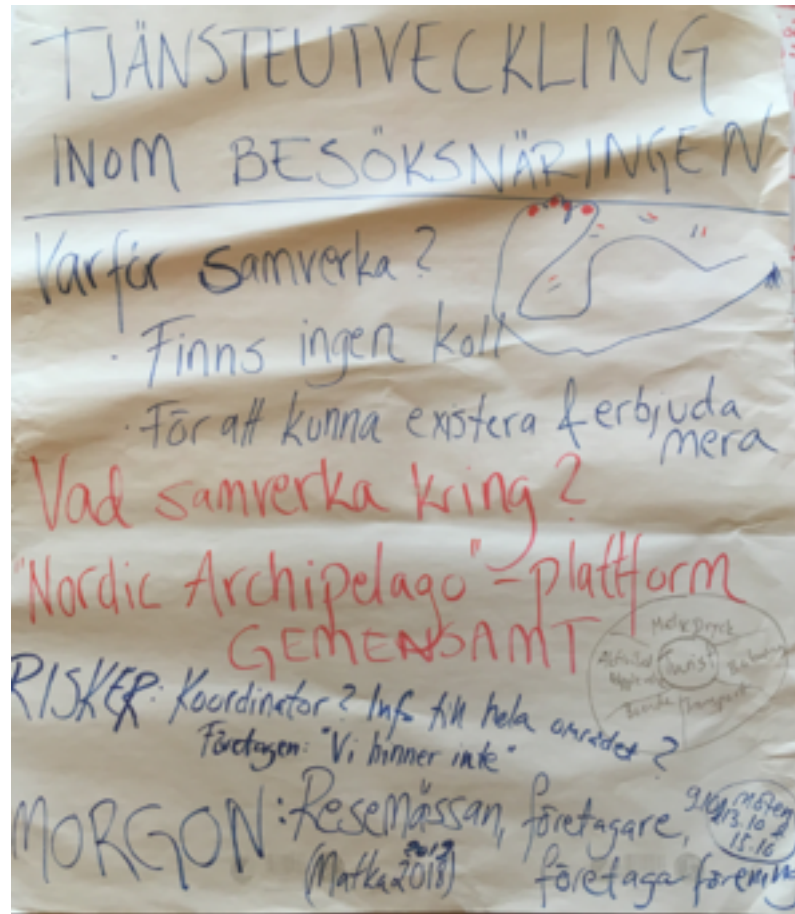 TJÄNSTEUTVECKLING
INOM BESÖKSNÄRINGEN
Varför samverka?
· Finns ingen koll
· För att kunna existera & erbjuda
mera
Vad samverka kring?
"Nordic Archipelago"-plattform
GEMENSAMT
Mat & dryck
Turist
Boende
Transport
RISKER: Koordinator? Info till hela området?
Företagen: "Vi hinner inte"
MORGON: Resemässan, företagare,
(Matka 2018)
2019
företagaförening
möten
13.10 &
15.10